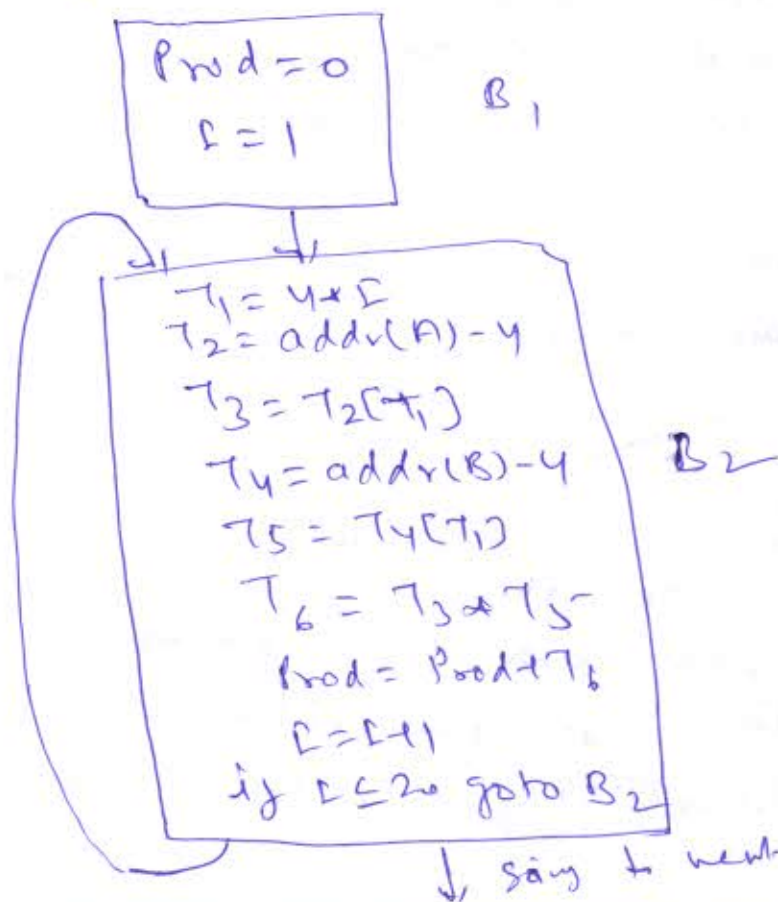 Prod = 0
I = 1
B1
T1 = 4 * I
T2 = addr(A) - 4
T3 = T2[T1]
T4 = addr(B) - 4
B2
T5 = T4[T1]
T6 = T3 * T5
Prod = Prod + T6
I = I + 1
if I ≤ 20 goto B2
to